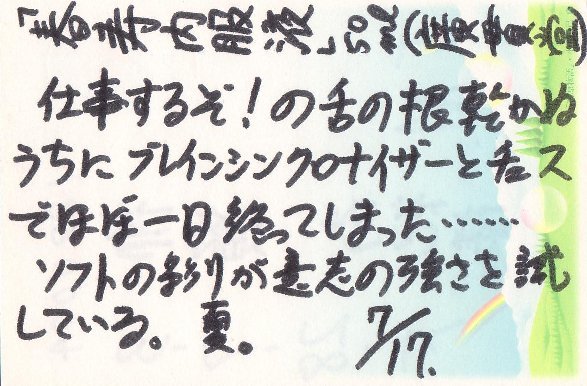 「寿内服液」50ml(廣貫堂)
仕事するぞ!の舌の根乾かぬ
うちに ブレインシンクロナイザーとチェス
でほぼ一日終ってしまった……
ソフトの彩りが意志の強さを試
している。夏。 7/17.